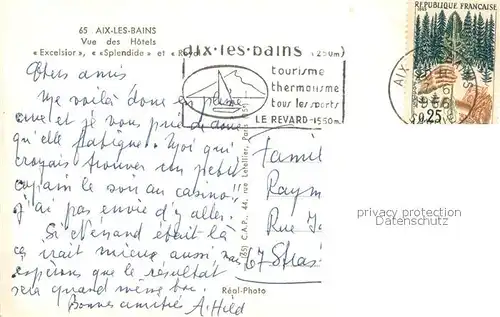 65 AIX-LES-BAINS
Vue des Hôtels
« Excelsior », « Splendide » et « Royal
aix·les·bains (250m)
tourisme
thermalisme
tous les sports
LE REVARD-1550m.
REPUBLIQUE FRANÇAISE
0,25
AIX
1966
Chers amis
Me voilà donc en pleine
cure et je vous prie de croire
qu'elle fatigue. Moi qui
croyais trouver un petit
copain le soir au casino!!
j'ai pas envie d'y aller.
Si était là
ça irait mieux aussi
espérons que le résultat
sera quand même bon.
Bonnes amitiés A. Hild
C.A.P., 44, rue Letellier, Paris (15
Famil
Raym
Rue
67 Stras
Réal-Photo
privacy protection
Datenschutz